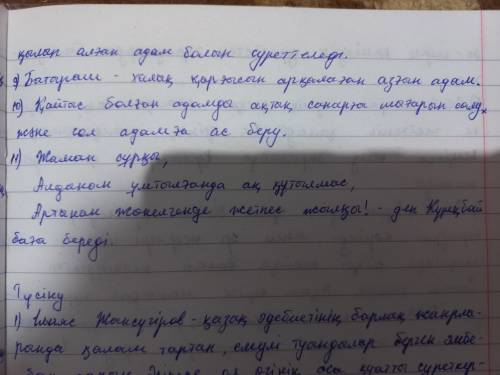 қылып алған адам болып суреттеледі.
9) Батыраш - халық қарғысын арқалаған азған адам.
10) Қайтыс болған адамды ақтық сапарға шығарып салу,
және сол адамға ас беру.
11) Жаман сұрқы,
Алдынан ұмтылғанда аң құтылмас,
Артынан жөнелгенде жетпес жылқы! - деп Құрңбай
баға береді.
Түсіну
1) Ілияс Жансүгіров - қазақ әдебиетінің барлық жанрла-
рында қалам тартқан, сүйекті туындылар берген әмбе-